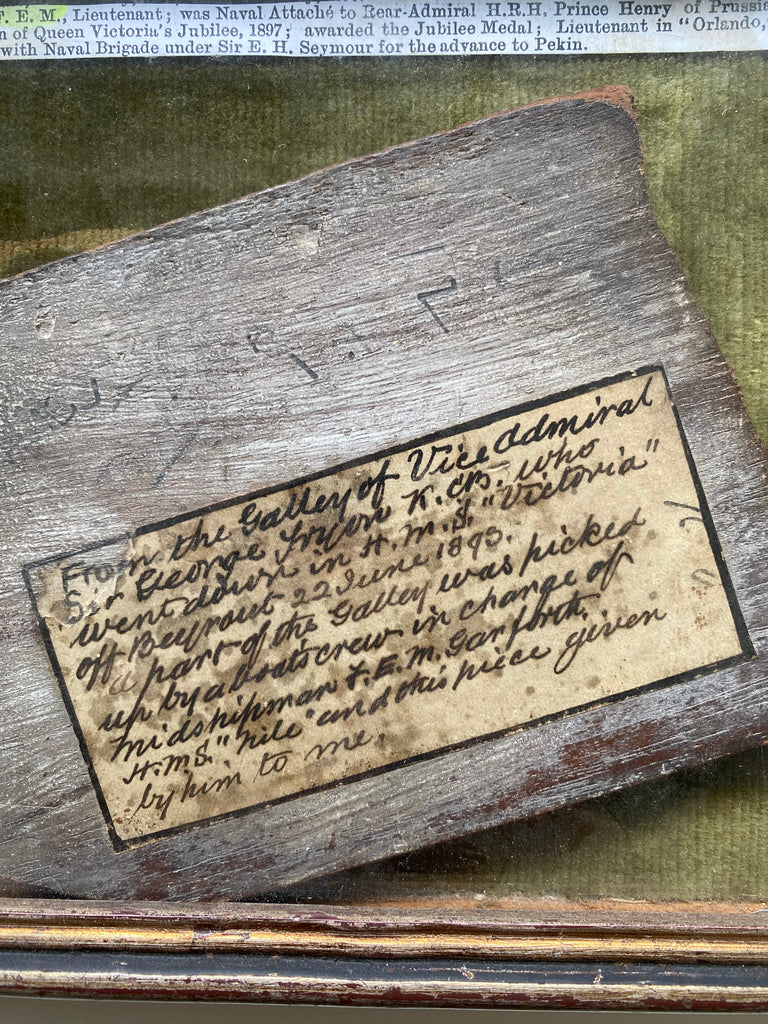 F. E. M., Lieutenant; was Naval Attaché to Rear-Admiral H.R.H. Prince Henry of Prussia
n of Queen Victoria's Jubilee, 1897; awarded the Jubilee Medal; Lieutenant in "Orlando,"
with Naval Brigade under Sir E. H. Seymour for the advance to Pekin.
From the Galley of Vice Admiral
Sir George Tryon K.C.B. who
went down in H.M.S. "Victoria"
off Beyrout 22 June 1893.
a part of the Galley was picked
up by a boats crew in charge of
midshipman F. E. M. Garforth.
H.M.S. "Nile" and this piece given
by him to me.